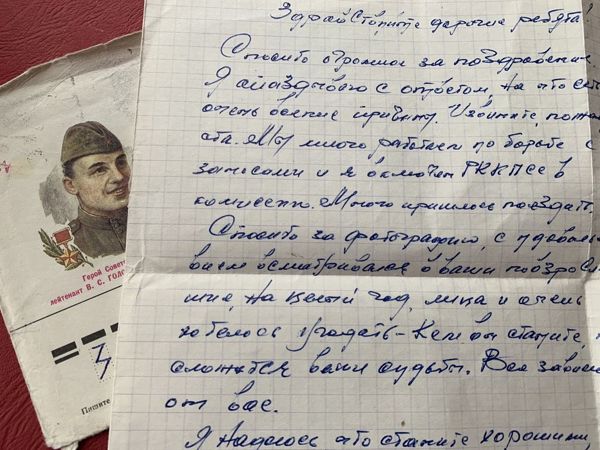 Здравствуйте дорогие ребята!
Спасибо огромное за поздравление.
Я опаздываю с ответом, на что есть
очень веские причины. Извините, пожалуй
ста. Мы много работаем по борьбе с
заносами и я включен РККПСС в
комиссию. Много пришлось поездать.
Спасибо за фотографию, с удоволь
вием всматривался в ваши повзросле
шие, на целый год, лица и очень
хотелось угадать - кем вы станете,
сложатся ваши судьбы. Все зависит
от вас.
Я надеюсь что станете хорошими,
Герой Совет
лейтенант В. С. ГОЛО
Пишите